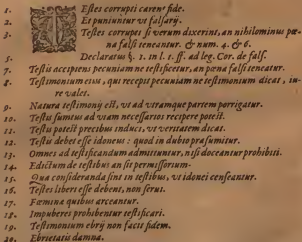 1. TEstes corrupti carent fide.
2. Et puniuntur vt falsarij.
3. Testes corrupti si verum dixerint, an nihilominus pœ-
na falsi teneantur. & num. 4. & 6.
5. Declaratus §. 1. in l. 1. ff. ad leg. Cor. de fals.
7. Testis accipiens pecuniam ne testificetur, an pœna falsi teneatur.
8. Testimonium eius, qui recepit pecuniam ne testimonium dicat, iu-
re vales.
9. Natura testimonij est, vt ad vtramque partem porrigatur.
10. Testis sumtus ad viam necessarios recipere potest.
11. Testis potest precibus induci, vt veritatem dicat.
12. Testis debet esse idoneus: quod in dubio præsumitur.
13. Omnes ad testificandum admittuntur, nisi doceantur prohibiti.
14. Edictum de testibus an sit permissorium.
15. Qua consideranda sint in testibus, vt idonei censeantur.
16. Testes liberi esse debent, non serui.
17. Fœmina quibus arceantur.
18. Impuberes prohibentur testificari.
19. Testimonium ebrij non facit fidem.
20. Ebrietatis damna.